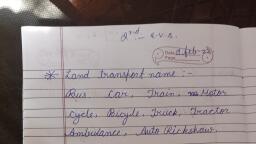 2nd :- E.V.S.
Date
Page
* Land transport name :-
Bus Car, Train, Motor
Cycle, Bicycle, Truck, Tractor
Ambulance, Auto Rickshaw.